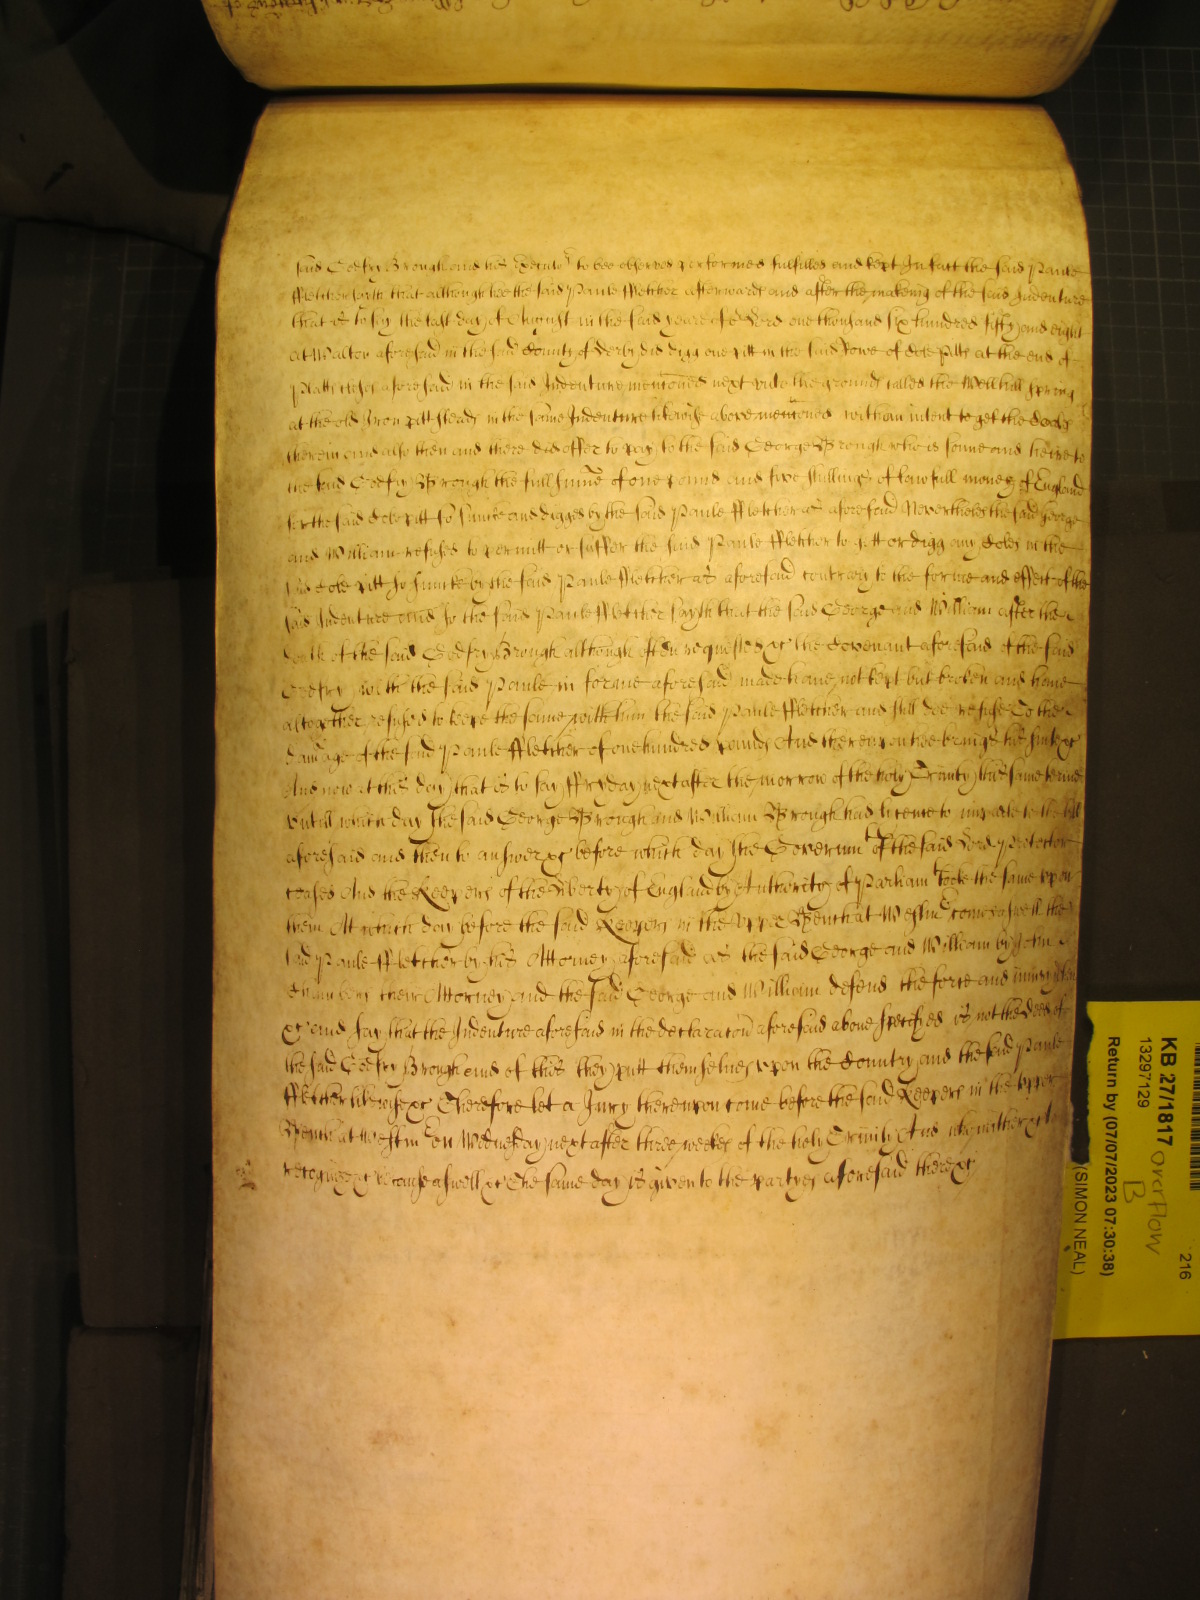 said Godfry Brough and his Executors to bee observed performed fulfilled and kept In fact the said Paule
Ffletcher saith that although hee the said Paule Ffletcher afterwards and after the makeing of the said Indenture
that is to say the last day of August in the said yeare of or Lord one thousand six hundred fifty and eight
at Walton aforesaid in the said County of Derby did digg one pitt in the said Rowe of Cole pitts at the end of
Platts aforesaid in the said Indenture mencioned next unto the ground called the Wellhill Spring
at the old Iron pitt steads in the same Indenture likewise above mencioned with an intent to get the Coles
therein and also then and there did offer to pay to the said George Brough who is sonne and heire to
the said Godfry Brough the full summe of one pound and five shillings of lawfull money of England
for the said Cole pitt so suncke and digged by the said Paule Ffletcher as aforesaid Nevertheles the said George
and William refused to permitt or suffer the said Paule Ffletcher to gett or digg any Coles in the
said Cole pitt so suncke by the said Paule Ffletcher as aforesaid contrary to the forme and effect of the
said Indenture And so the said Paule Ffletcher sayth that the said George and William after the
death of the said Godfry Brough although often requested &c the Covenant aforesaid of the said
Godfry with the said Paule in forme aforesaid made have not kept but broken and have
altogether refused to keepe the same with him the said Paule Ffletcher and still doe refuse To the
damage of the said Paule Ffletcher of one hundred pounds And thereupon hee brings his suit &c
And now at this day that is to say Ffryday next after the morrow of the holy Trinity this same terme
untill which day the said George Brough and William Brough had licence to imparle to the bill
aforesaid and then to answer &c before which day the Governmt of the said Lord Protector
ceased And the Keepers of the Liberty of England by Authority of Parliamt tooke the same upon
them At which day before the said Keepers in the Upper Bench at Westmr come aswell the
said Paule Ffletcher by his Attorney aforesaid as the said George and William by John
their Attorney and the said George and William defend the force and injury when
&c and say that the Indenture aforesaid in the declaracon aforesaid above specifyed is not the deed of
the said Godfry Brough and of this they putt themselves upon the Country and the said Paule
Ffletcher likewise &c Therefore let a Jury thereupon come before the said Keepers in the Upper
Bench at Westmr on Wednesday next after three weekes of the holy Trinity And who neither &c to
recognize &c because aswell &c The same day is given to the partyes aforesaid there &c
KB 27/1817 overflow
B
216
13297129
Return by (07/07/2023 07:30:38)
(SIMON NEAL)